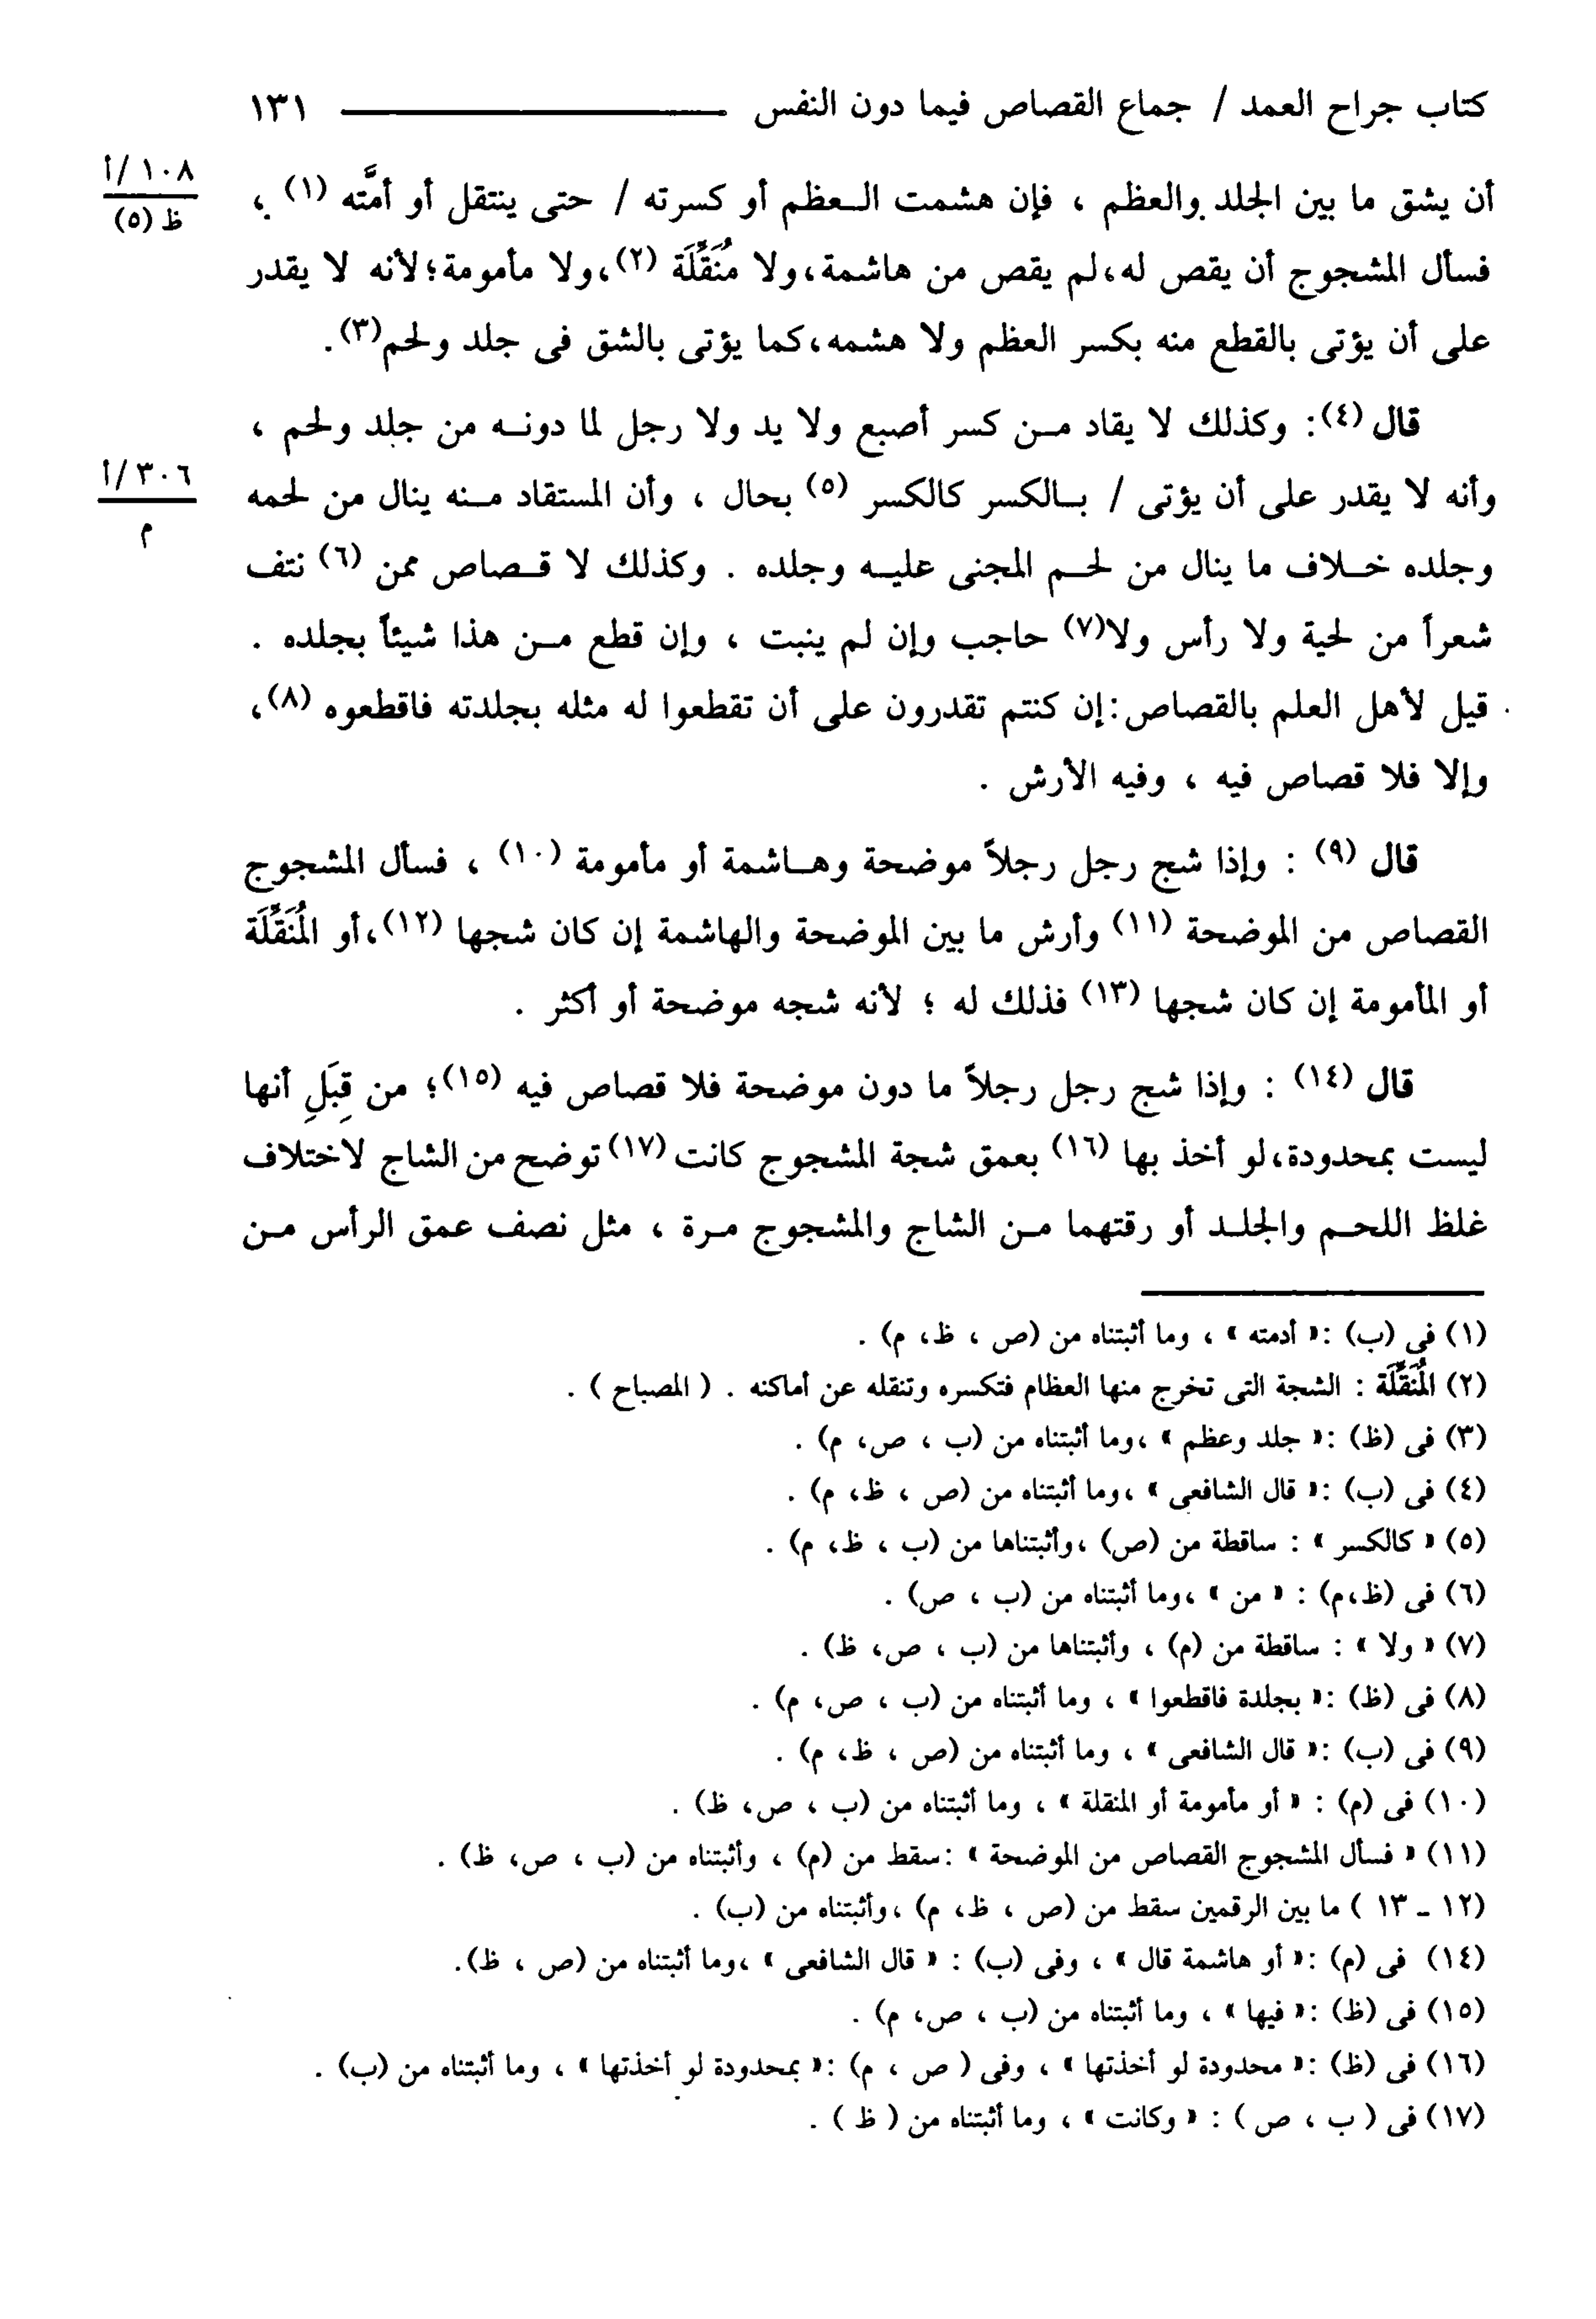 كتاب جراح العمد / جماع القصاص فيما دون النفس ١٣١
١٠٨/أ
ظ (٥)
أن يشق ما بين الجلد والعظم ، فإن هشمت العظم أو كسرته / حتى ينتقل أو أمَّته (١) ،
فسأل المشجوج أن يقص له،لم يقص من هاشمة،ولا مُنَقِّلَة (٢)،ولا مأمومة؛لأنه لا يقدر
على أن يؤتى بالقطع منه بكسر العظم ولا هشمه،كما يؤتى بالشق فى جلد ولحم(٣).
قال (٤): وكذلك لا يقاد من كسر أصبع ولا يد ولا رجل لما دونه من جلد ولحم ،
٣٠٦/أ
م
وأنه لا يقدر على أن يؤتى / بالكسر كالكسر (٥) بحال ، وأن المستقاد منه ينال من لحمه
وجلده خلاف ما ينال من لحم المجنى عليه وجلده . وكذلك لا قصاص ممن (٦) نتف
شعراً من لحية ولا رأس ولا(٧) حاجب وإن لم ينبت ، وإن قطع من هذا شيئاً بجلده .
قيل لأهل العلم بالقصاص:إن كنتم تقدرون على أن تقطعوا له مثله بجلدته فاقطعوه (٨)،
وإلا فلا قصاص فيه ، وفيه الأرش .
قال (٩) : وإذا شج رجل رجلاً موضحة وهاشمة أو مأمومة (١٠) ، فسأل المشجوج
القصاص من الموضحة (١١) وأرش ما بين الموضحة والهاشمة إن كان شجها (١٢)،أو المُنَقِّلَة
أو المأمومة إن كان شجها (١٣) فذلك له ؛ لأنه شجه موضحة أو أكثر .
قال (١٤) : وإذا شج رجل رجلاً ما دون موضحة فلا قصاص فيه (١٥)؛ من قِبَلِ أنها
ليست بمحدودة،لو أخذ بها (١٦) بعمق شجة المشجوج كانت (١٧) توضح من الشاج لاختلاف
غلظ اللحم والجلد أو رقتهما من الشاج والمشجوج مرة ، مثل نصف عمق الرأس من
(١) فى (ب) :« أدمته » ، وما أثبتناه من (ص ، ظ، م) .
(٢) المُنَقِّلَة : الشجة التى تخرج منها العظام فتكسره وتنقله عن أماكنه . ( المصباح ) .
(٣) فى (ظ) :« جلد وعظم » ،وما أثبتناه من (ب ، ص، م) .
(٤) فى (ب) :« قال الشافعى » ،وما أثبتناه من (ص ، ظ، م) .
(٥) « كالكسر » : ساقطة من (ص) ،وأثبتناها من (ب ، ظ، م) .
(٦) فى (ظ،م) : « من » ،وما أثبتناه من (ب ، ص) .
(٧) « ولا » : ساقطة من (م) ، وأثبتناها من (ب ، ص، ظ) .
(٨) فى (ظ) :« بجلدة فاقطعوا » ، وما أثبتناه من (ب ، ص، م) .
(٩) فى (ب) :« قال الشافعى » ، وما أثبتناه من (ص ، ظ، م) .
(١٠) فى (م) : « أو مأمومة أو المنقلة » ، وما أثبتناه من (ب ، ص، ظ) .
(١١) « فسأل المشجوج القصاص من الموضحة » :سقط من (م) ، وأثبتناه من (ب ، ص، ظ) .
(١٢ - ١٣ ) ما بين الرقمين سقط من (ص ، ظ، م) ،وأثبتناه من (ب) .
(١٤) فى (م) :« أو هاشمة قال » ، وفى (ب) : « قال الشافعى » ،وما أثبتناه من (ص ، ظ).
(١٥) فى (ظ) :« فيها » ، وما أثبتناه من (ب ، ص، م) .
(١٦) فى (ظ) :« محدودة لو أخذتها » ، وفى ( ص ، م) :« بمحدودة لو أخذتها » ، وما أثبتناه من (ب) .
(١٧) فى ( ب ، ص ) : « وكانت » ، وما أثبتناه من ( ظ ) .